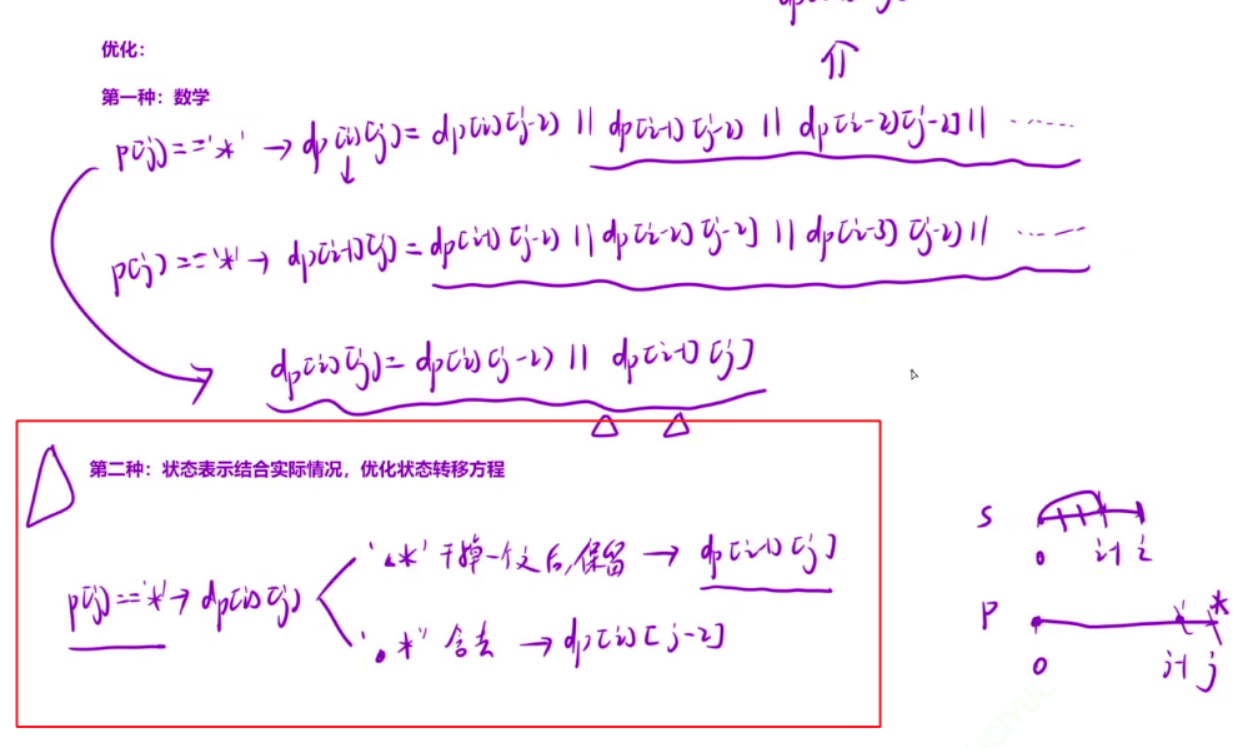 优化：
第一种：数学
p[j]=='*' → dp[i][j]= dp[i][j-2] || dp[i-1][j-2] || dp[i-2][j-2] || ......
p[j]=='*' → dp[i-1][j]= dp[i-1][j-2] || dp[i-2][j-2] || dp[i-3][j-2] || ......
dp[i][j]= dp[i][j-2] || dp[i-1][j]
第二种：状态表示结合实际情况，优化状态转移方程
'.*' 干掉一个之后,保留 → dp[i-1][j]
p[j]=='*' → dp[i][j]
'.*' 舍去 → dp[i][j-2]
s
0 i-1 i
p *
0 j-1 j